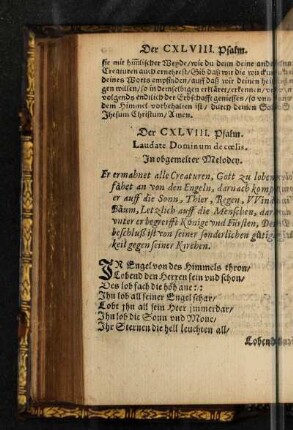 Der CXLVIII. Psalm.
sie mit himlischer Weyde / wie du denn deine andere
Creaturen auch ernehrest / Gib daß wir die
deines Worts empfinden / auff daß wir deinen heil
gen willen / so in demselbigen erkläret / erkennen /
volgends endtlich der Erbschafft geniessen / so uns
dem Himmel vorbehalten ist / durch deinen Sohn
Jhesum Christum / Amen.
Der CXLVIII. Psalm.
Laudate Dominum de cœlis.
In obgemelter Melodey.
Er ermahnet alle Creaturen, Gott zu loben
fähet an von den Engeln, darnach kompt
er auff die Sonn, Thier, Regen, VVind
Bäum, Letzlich auff die Menschen, dar
unter er begreiffe Könige vnd Fürsten,
beschluß ist von seiner sonderlichen gütig
keit gegen seiner Kirchen.
IR Engel von des Himmels thron /
Lobend den Herren fein vnd schon /
Des lob fach die höh ane :/:
Ihn lob all seiner Engel schar /
Lobt ihn all sein Heer jmmerdar /
Ihn lob die Sonn vnd Mone /
Ihr Sternen die hell leuchten all /
Lobend